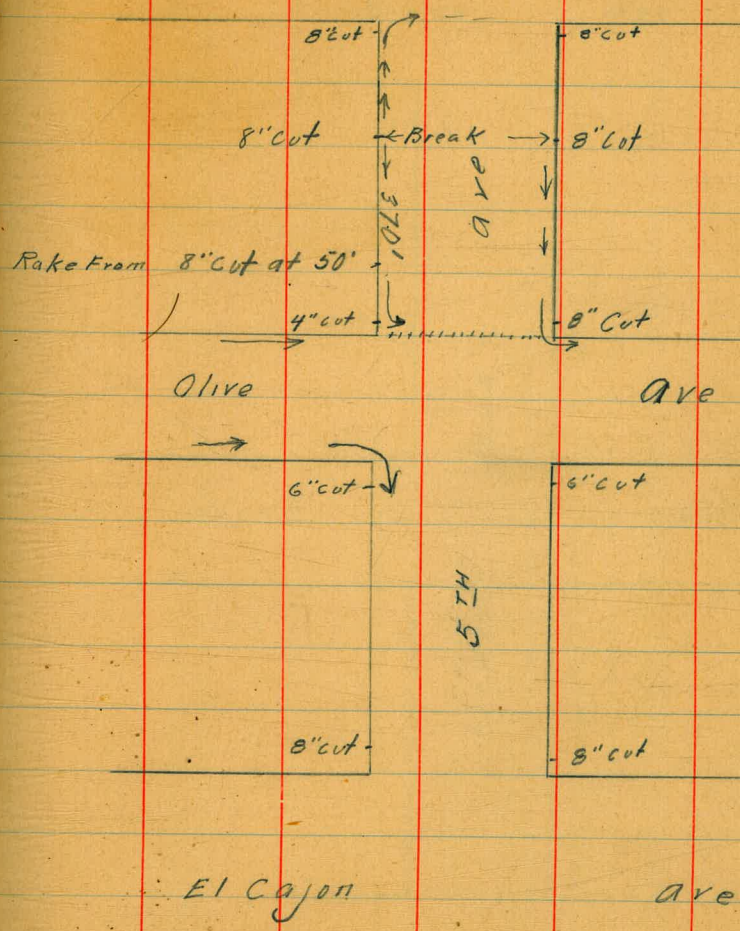 8"cut
8"cut
8"Cut
←Break →
8"Cut
ave
370'
Rake From 8"Cut at 50'
4"cut
8"Cut
Olive ave
6"cut
6"cut
5TH
8"cut
8"cut
El Cajon ave